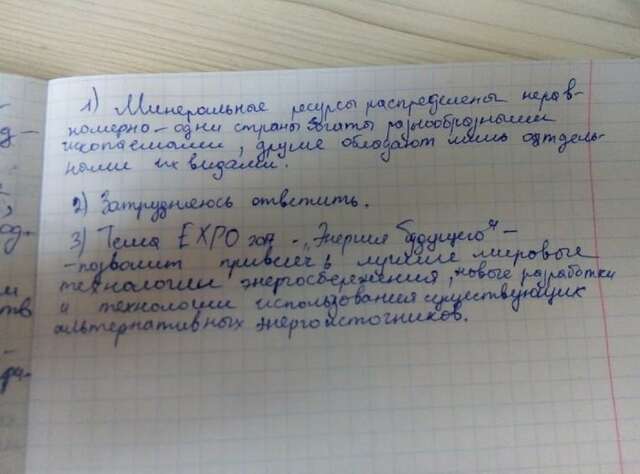 1) Минеральные ресурсы распределены нерав-
номерно - одни страны богаты разнообразными
ископаемыми, другие обладают лишь отдель-
ными их видами.
2) Затрудняюсь ответить.
3) Тема EXPO 2017 - „Энергия будущего" -
- позволит привлечь лучшие мировые
технологии энергосбережения, новые разработки
и технологии использования существующих
альтернативных энергоисточников.